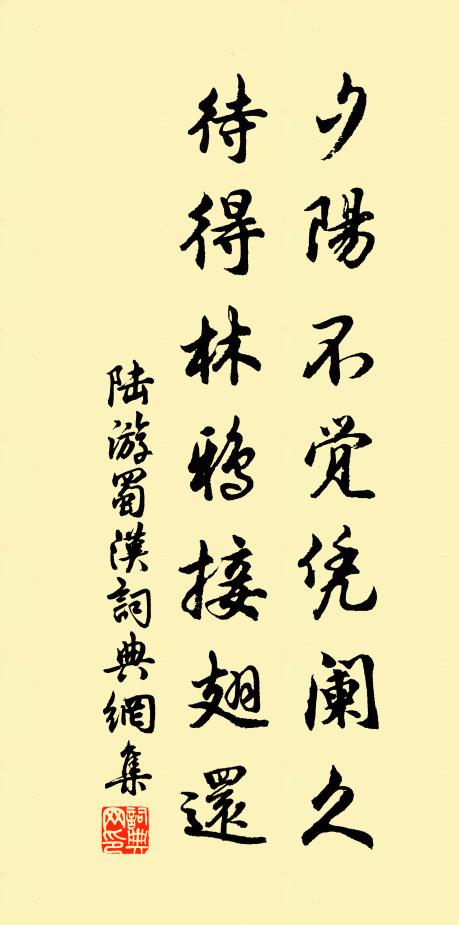 夕陽不觉凭阑久
待得林鸦接翅還
陆游蜀漢詞典網集
詞典网印